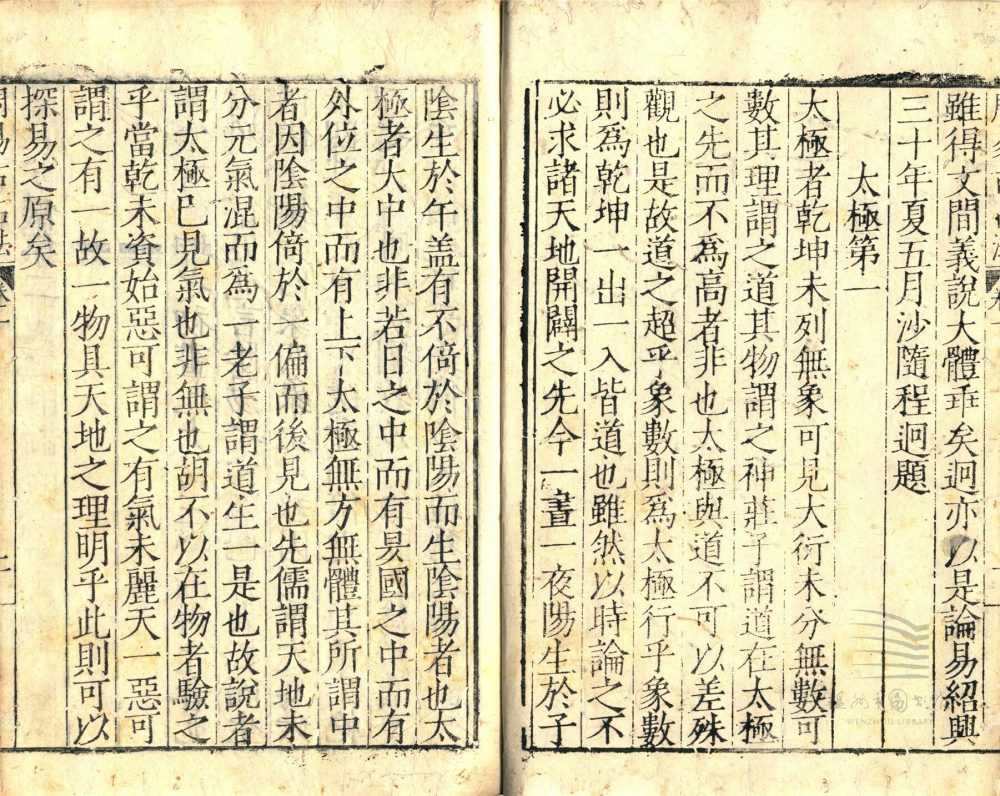 雖得文間義說大體乖矣迥亦以是論易紹興
三十年夏五月沙隨程迥題
太極第一
太極者乾坤未列無象可見大衍未分無數可
數其理謂之道其物謂之神莊子謂道在太極
之先而不爲高者非也太極與道不可以差殊
觀也是故道之超乎象數則爲太極行乎象數
則爲乾坤一出一入皆道也雖然以時論之不
必求諸天地開闢之先今一晝一夜陽生於子
陰生於午盖有不倚於陰陽而生陰陽者也太
極者大中也非若日之中而有昃國之中而有
外位之中而有上下太極無方無體其所謂中
者因陰陽倚於一偏而後見也先儒謂天地未
分元氣混而爲一老子謂道生一是也故說者
謂太極已見氣也非無也胡不以在物者驗之
乎當乾未資始惡可謂之有氣未麗天一惡可
謂之有一故一物具天地之理明乎此則可以
探易之原矣
WENZHOU LIBRARY